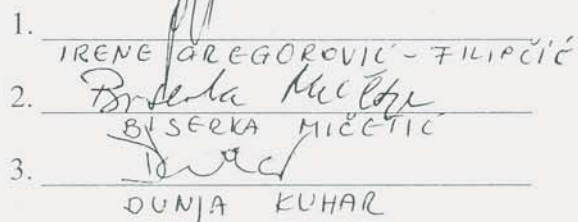 1.
IRENE GREGOROVIĆ - FILIPČIĆ
2. Biserka Mičetić
BISERKA MIČETIĆ
3.
DUNJA KUHAR